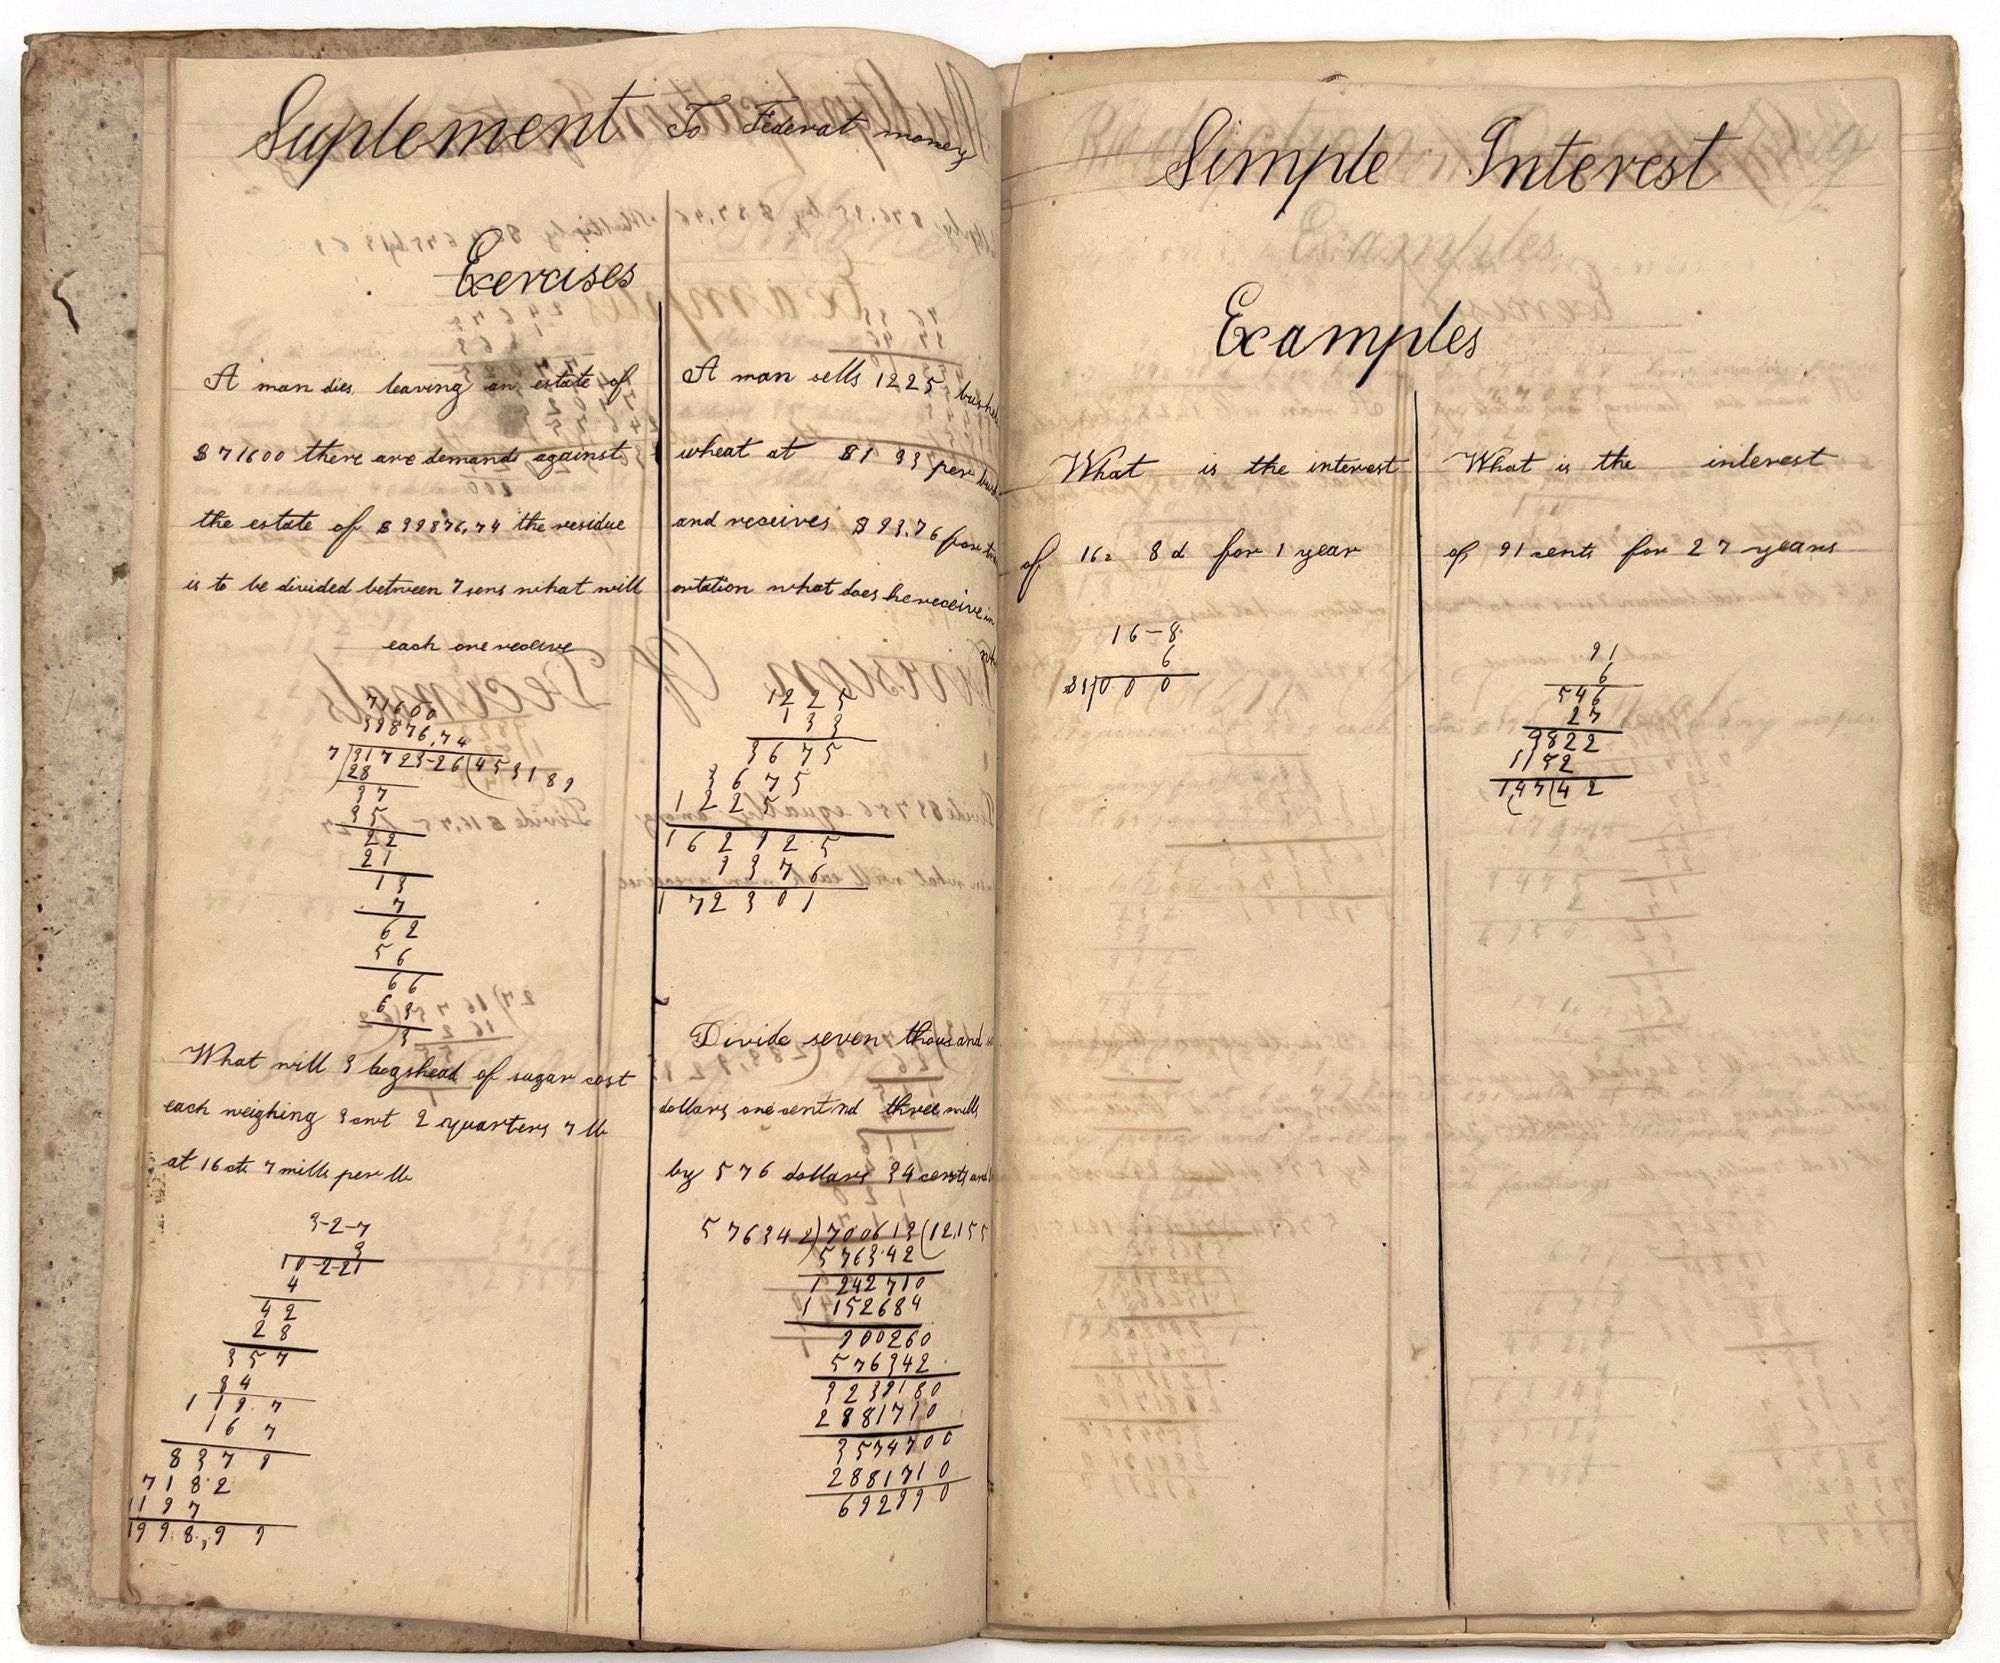 Suplement To Federal money
Exercises
A man dies leaving an estate of
$71600 there are demands against
the estate of $39876,74 the residue
is to be divided between 7 sons what will
each one receive
71600
39876,74
7)31723-26(453189
28
37
35
22
21
13
7
62
56
66
63
3
What will 3 hogshead of sugar cost
each weighing 3 cwt 2 quarters 7 lb
at 16 cts 7 mills per lb
3-2-7
3
10-2-21
4
42
28
357
84
1197
167
8379
7182
1197
199.8,99
A man sells 1225 bushel
wheat at $1 33 per bush
and receives $93.76 for tra
ortation what does he receive in
1225
133
3675
3675
1225
162925
9376
172301
Divide seven thousand
dollars one cent nd three mills
by 576 dollars 34 cents and
576342)700613(12,155
576342
1242710
1152684
900260
576342
3239180
2881710
3574700
2881710
692990
Simple Interest
Examples
What is the interest
of 16s 8d for 1 year
16-8
6
$1|000
What is the interest
of 91 cents for 27 years
91
6
546
27
3822
1152
147|42